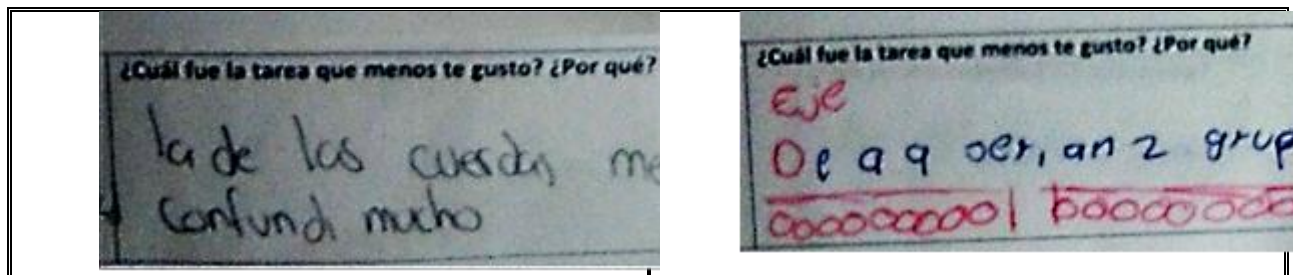 ¿Cuál fue la tarea que menos te gusto? ¿Por qué?
la de las cuerdas me
confundi mucho
¿Cuál fue la tarea que menos te gusto? ¿Por qué?
Eje
De a 9 ser,an 2 grup
000000000| 00000000